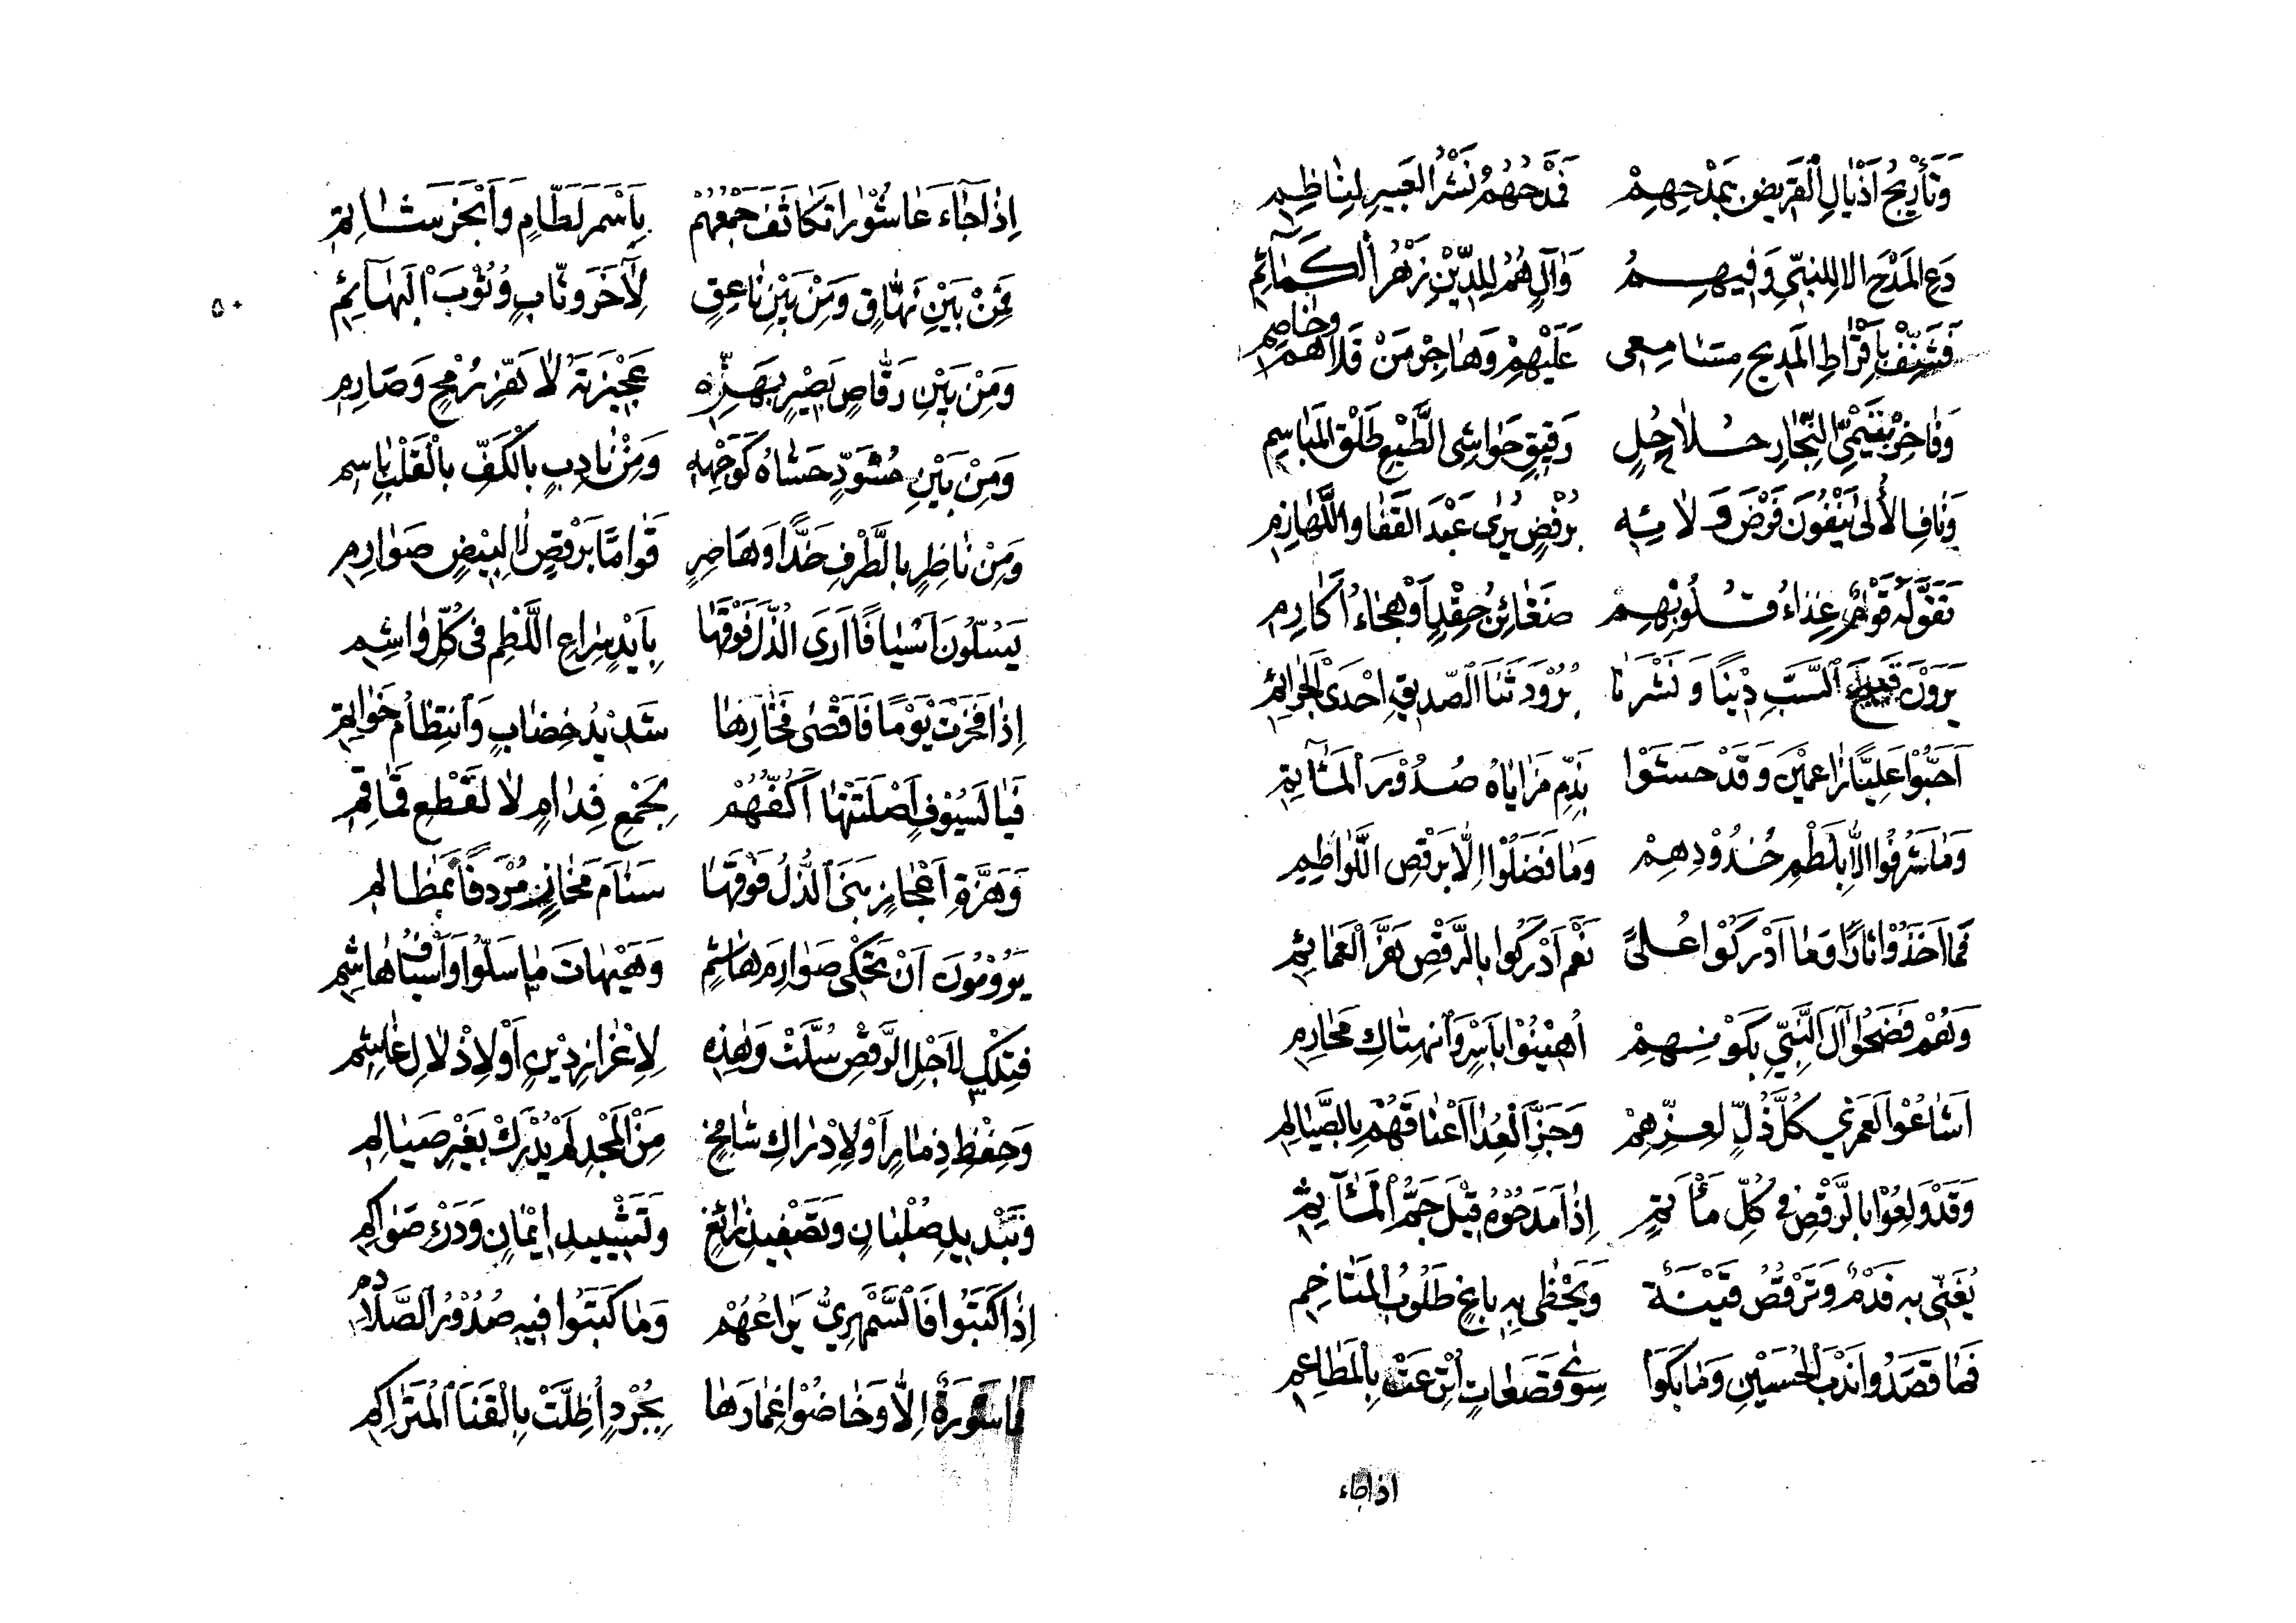 وَتَأْرِيْجُ اَذْيَالِ الْقَرِيضِ بِمَدْحِهِمْ فَمَدْحُهُمُ نَشْرُ الْعَبِيرِ لِنَاظِمِ
دَعِ الْمَدْحَ الا لِلنَّبِيِّ وَفِيهِمُ وَآلٍ هُمُ لِلدِّيْنِ زَهْرُ الْكَمَآئِمِ
فَشَنِّفْ بِاَقْرَاطِ الْمَدِيحِ مَسَامِعِى عَلَيْهِمْ وَهَاجِرْ مَنْ قَلَاهُمْ وَخَاصِمِ
وَفَاخِرْ بِتَيْمِيِّ النِّجَارِ حُلَاحِلٍ رَقِيقِ حَوَاشِى الطَّبْعِ طَلْقِ الْمَبَاسِمِ
وَنَافِ الْأُلىٰ يَنْفُونَ فَرْضَ وَلَائِهِ بِرُفْضٍ يُرىٰ عَبْدَ الْقَفَا وَاللَّهَازِمِ
تَقَوَّلَهُ قَوْمٌ غِذَاءُ قُلُوْبِهِمْ ضَغَائِنُ حِقْدٍ اَوْ هِجَاءُ اَكَارِمِ
يَرَوْنَ قَبِيحَ السَّبِّ دِيْنًا وَنَشْرَنَا بُرُوْدَ ثَنَا الصِّدِيقِ اِحْدَى الْجَرَائِمِ
اَحَبُّوْا عَلِيًّا زَاعِمِيْنَ وَقَدْ حَشَوْا بِذَمِّ مَزَايَاهُ صُدُوْرَ الْمَآتِمِ
وَمَا شَرُفُوْا اِلَّا بِلَطْمِ خُدُوْدِهِمْ وَمَا فَضَلُوْا اِلَّا بِرَقْصِ اللَّوَاطِمِ
فَمَا اَخَذُوْا ثَارًا وَمَا اَدْرَكُوْا عُلىً نَعَمْ اَدْرَكُوا بِالرَّقْصِ هَزَّ الْعَمَائِمِ
وَهُمْ فَضَحُوْا آلَ النَّبِيِّ بِكَوْنِهِمْ اُهِيْنُوْا بِاَسْرٍ وَانْهِتَاكِ مَحَارِمِ
اَشَاعُوْا لَعَمْرِي كُلَّ ذُلٍّ لِعِزِّهِمْ وَجَزَّ الْعِدَا اَعْنَاقَهُمْ بِالصَّيَالِمِ
وَقَدْ وَلِعُوْا بِالرَّقْصِ فِي كُلِّ مَأْتَمٍ اِذَا مَدَحُوْهُ قِيْلَ جَمُّ الْمَآثِمِ
يُغَنّى بِهِ فَدْمٌ وَتَرْقُصُ قَيْنَةٌ وَيَحْظٰى بِهِ بَاغٍ طَلُوبُ
فَمَا قَصَدُوا نَدْبَ الْحُسَيْنِ وَمَا بَكَوْا سِوٰى قَصَعَاتٍ اُتْرِعَتْ بِالْمَطَاعِمِ
اذا جاء
٥٠
اِذَا جَاءَ عَاشُوْرَا تَكَاثَفَ جَمْعُهُمْ بِاَشْمَرَ لَطَّامٍ وَاَنْخَرَ شَاتِمِ
فَمِنْ بَيْنِ نَهَّاقٍ وَمِنْ بَيْنِ نَاعِقٍ لِآخَرَ وَثَّابٍ وُثُوْبَ الْبَهَآئِمِ
وَمِنْ بَيْنِ رَقَّاصٍ بَصِيْرٍ بِهَزِّهِ عَجِيْزَتَهُ لَا هَزِّ رُمْحٍ وَصَارِمِ
وَمِنْ بَيْنِ مُسْوَدٍّ حَشَاهُ كَوَجْهِهِ وَمِنْ نَادِبٍ بِالْكَفِّ بِالْقَلْبِ بَاسِمِ
وَمِنْ نَاظِرٍ بِالطَّرْفِ خَدًّا وَهَاصِرٍ قَوَامًا بِرَقْصٍ لَا لِبِيْضٍ صَوَارِمِ
يَسُلّوُنَ اَسْيَافًا اَرَى الذُّلَّ فَوْقَهَا بِاَيْدٍ سِرَاعِ اللَّطْمِ فى كُلِّ وَاشِمِ
اِذَا فَخَرَتْ يَوْمًا فَاَقْصٰى فَخَارِهَا شَدِيْدُ خِضَابٍ وَانْتِظَامُ خَوَاتِمِ
فَيَا لَسُيُوْفٍ اَصْلَتَتْهَا اَكُفُّهُمْ بِجَمْعِ فِدَامٍ لَا لِقَطْعِ قَمَاقِمِ
وَهَزَّةِ اَعْجَازٍ بَنَى الذُّلُّ فَوْقَهَا سَنَامَ مَخَازٍ مُرْدَفًا بِمَظَالِمِ
يَرُوْمُونَ اَنْ تَحْكى صَوَارِمَ هَاشِمٍ وَهَيْهَاتَ مَا سَلُّوْا وَاَسْيَافُ هَاشِمِ
فَتِلْكَ لِاَجْلِ الرَّقْصِ سُلَّتْ وَهٰذِهِ لِاِعْزَازِ دِيْنٍ اَوْ لِاِذْلَالِ غَاشِمِ
وَحِفْظِ ذِمَارٍ اَوْ لِاِدْرَاكِ شَامِخٍ مِنَ الْمَجْدِ لَمْ يُدْرَكْ بِغَيْرِ صَيَالِمِ
وَتَبْدِيدِ صُلْبَانٍ وَتَصْفِيدِ زَائِغٍ وَتَشْيِيدِ اِيْمَانٍ وَدَرْءِ
اِذَا كَتَبُوا فَالسَّمْهَرِيُّ يَرَاعُهُمْ وَمَا كَتَبُوا فِيهِ صُدُوْرُ الصَّلَادِمِ
اِلَّا وَخَاضُوْا غِمَارَهَا بِجُرْدٍ اُظِلَّتْ بِالْقَنَا الْمُتَرَاكِمِ